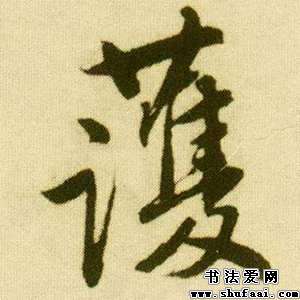 護
书法爱网
www.shufaai.com